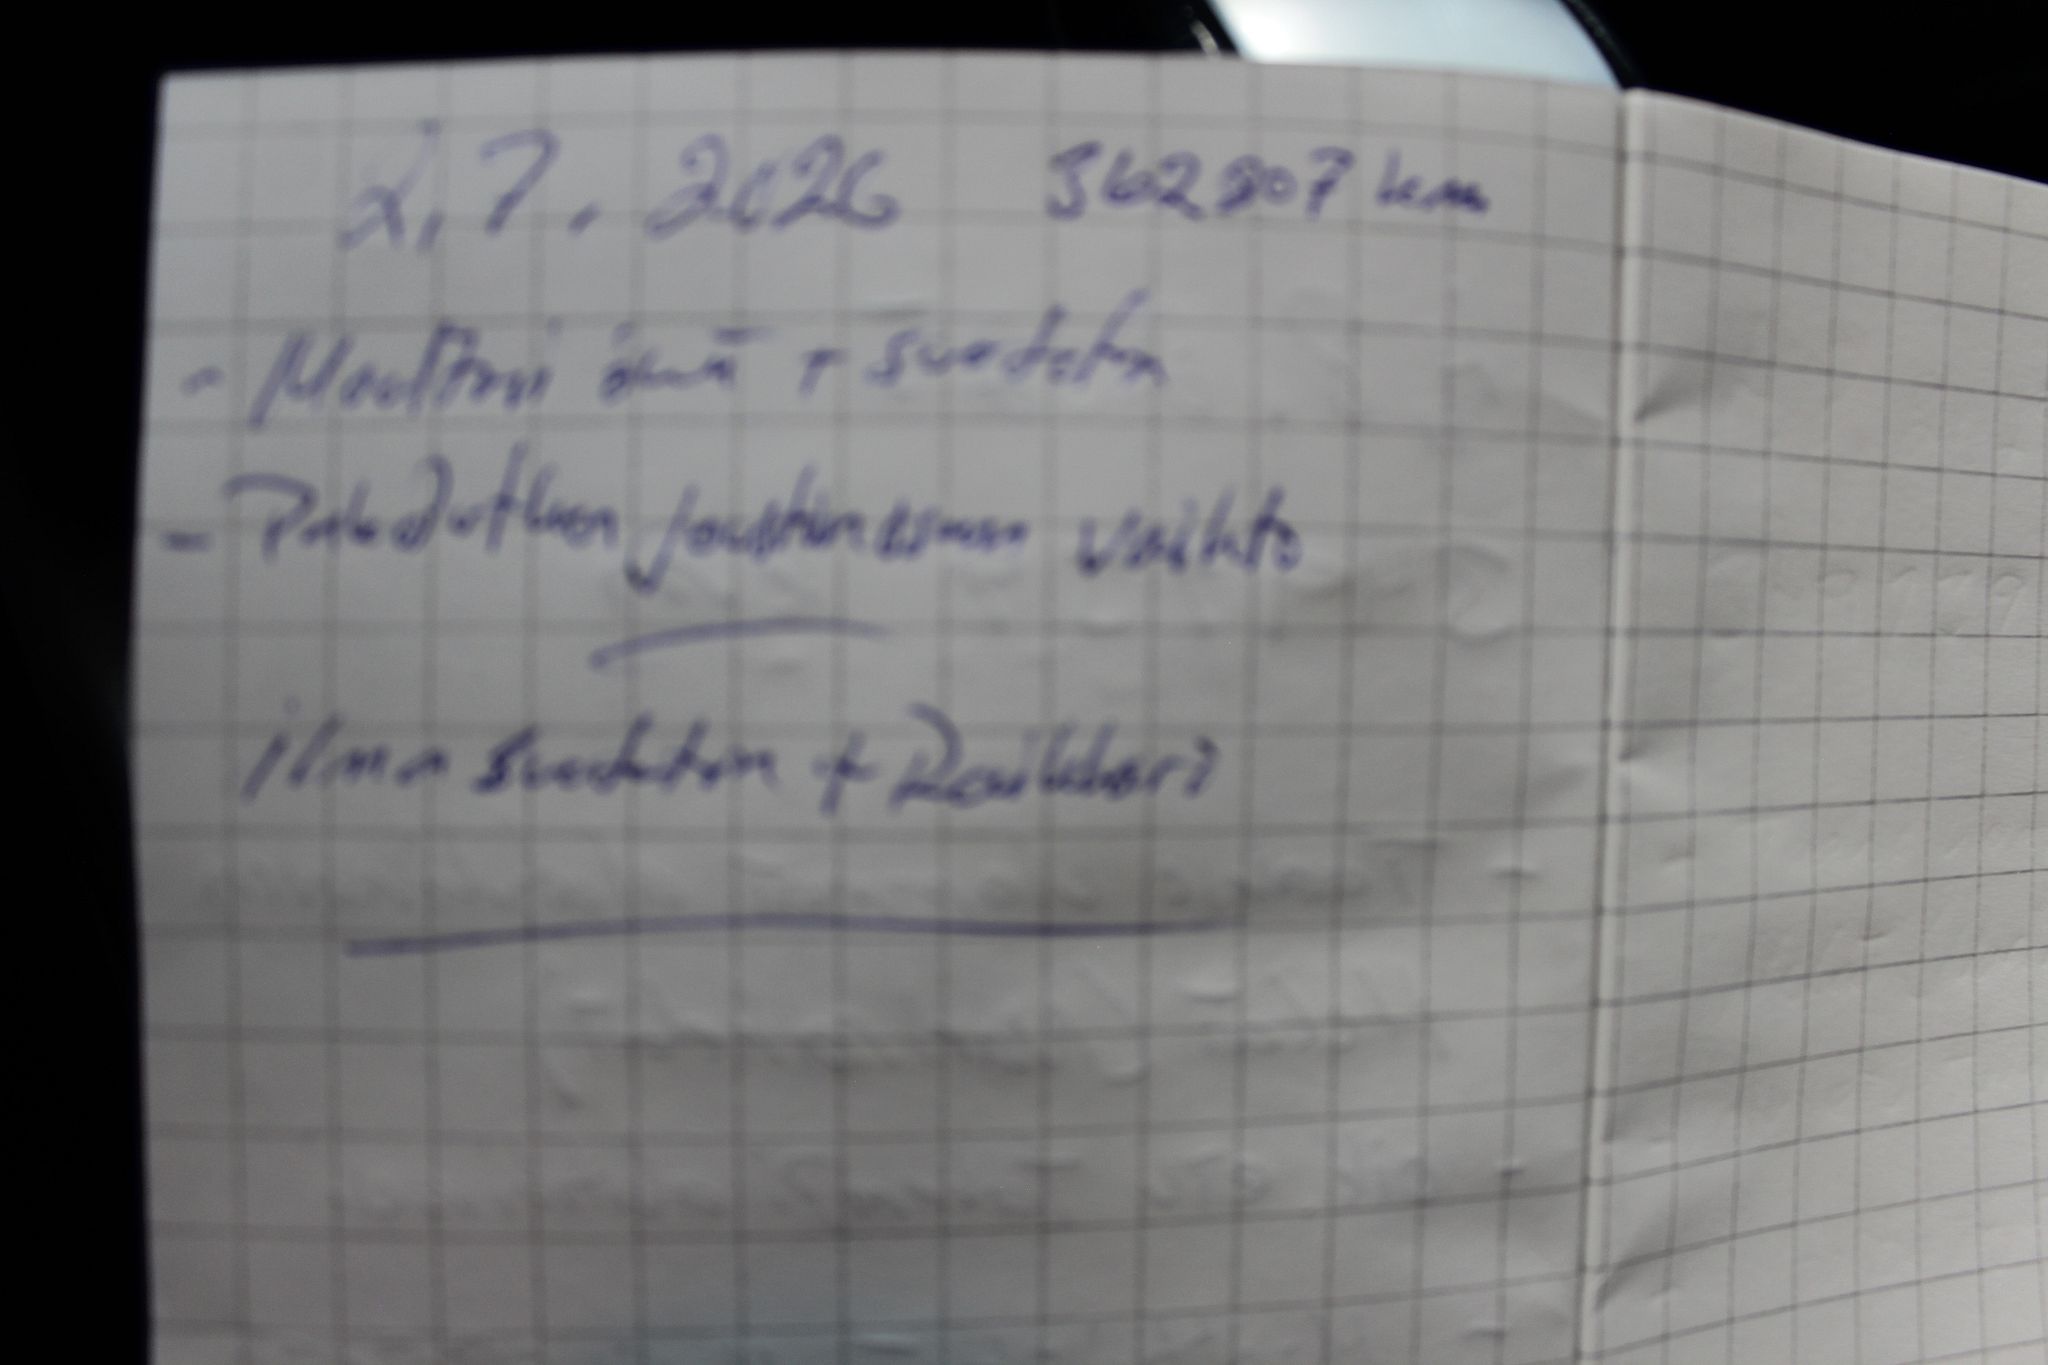 2.7.2026 362807 km
- Moottori öljyt + suodatin
- Pakoputken joustinosan vaihto
ilman suodatin + Raikkari